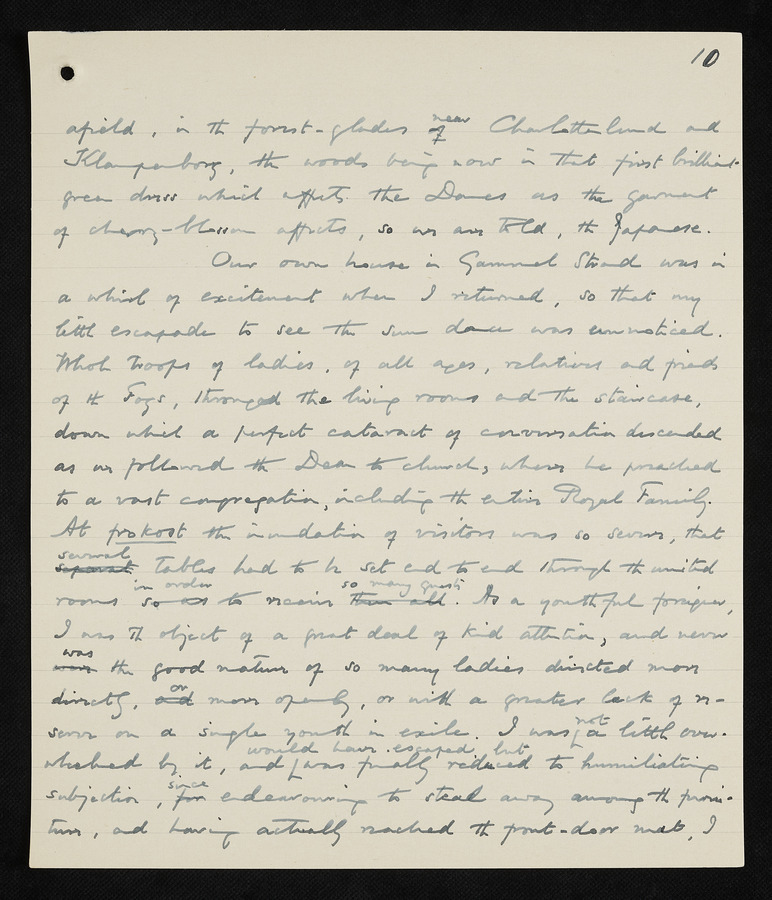 10
afield, in th forest-glades of near Charlottenlund and
Klampenborg, th woods being now in that first brilliant
green dress which affects the Danes as the garment
of cherry-blossom affects, so we are told, th Japanese.
Our own house in Gammel Strand was in
a whirl of excitement when I returned, so that my
little escapade to see the sun dance was unnoticed.
Whole troops of ladies, of all ages, relatives and friends
of th Fogs, thronged the living rooms and the staircase,
down which a perfect cataract of conversation descended
as we followed th Dean to church, where he preached
to a vast congregation, including th entire Royal Family.
At frokost the inundation of visitors was so severe, that
several
separate tables had to be set end to end through th united
in order so many guests
rooms so as to receive them all. As a youthful foreigner,
I was th object of a great deal of kind attention, and never
was
were the good nature of so many ladies directed more
or
directly, and more openly, or with a greater lack of re-
serve on a single youth in exile. I was not a little over-
would have escaped, but
whelmed by it, and was finally reduced to humiliating
since
subjection, for endeavouring to steal away among th furni-
ture, and having actually reached th front-door mat, I